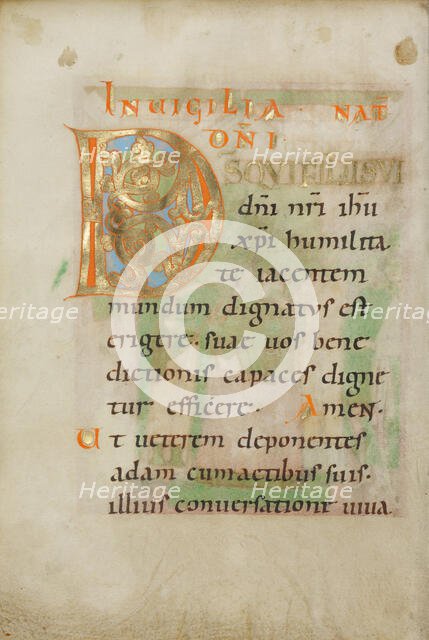 IN VIGILIA NAT̄
DN̄I
DS QVI FILII SVI
dn̄i nr̄i ihū
xp̄i humilita
te iacentem
mundum dignatus est
erigere · suae uos bene
dictionis capaces digne
tur efficere · AMEN ·
Ut ueterem deponentes
adam cum actibus suis ·
illius conuersatione uiua
Heritage Heritage
Heritage Heritage
Heritage Heritage
Heritage Heritage
Heritage Heritage